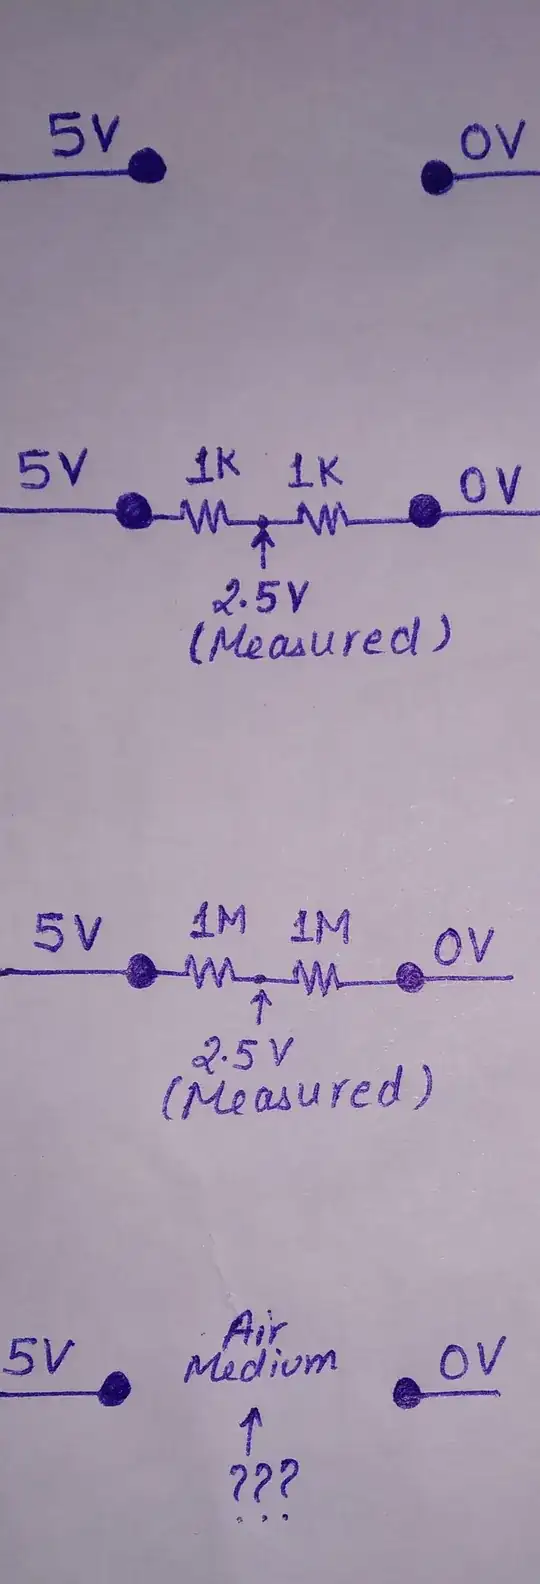 5V 0V
5V 1K 1K 0V
2.5V
(Measured)
5V 1M 1M 0V
2.5V
(Measured)
Air
5V Medium 0V
???
...